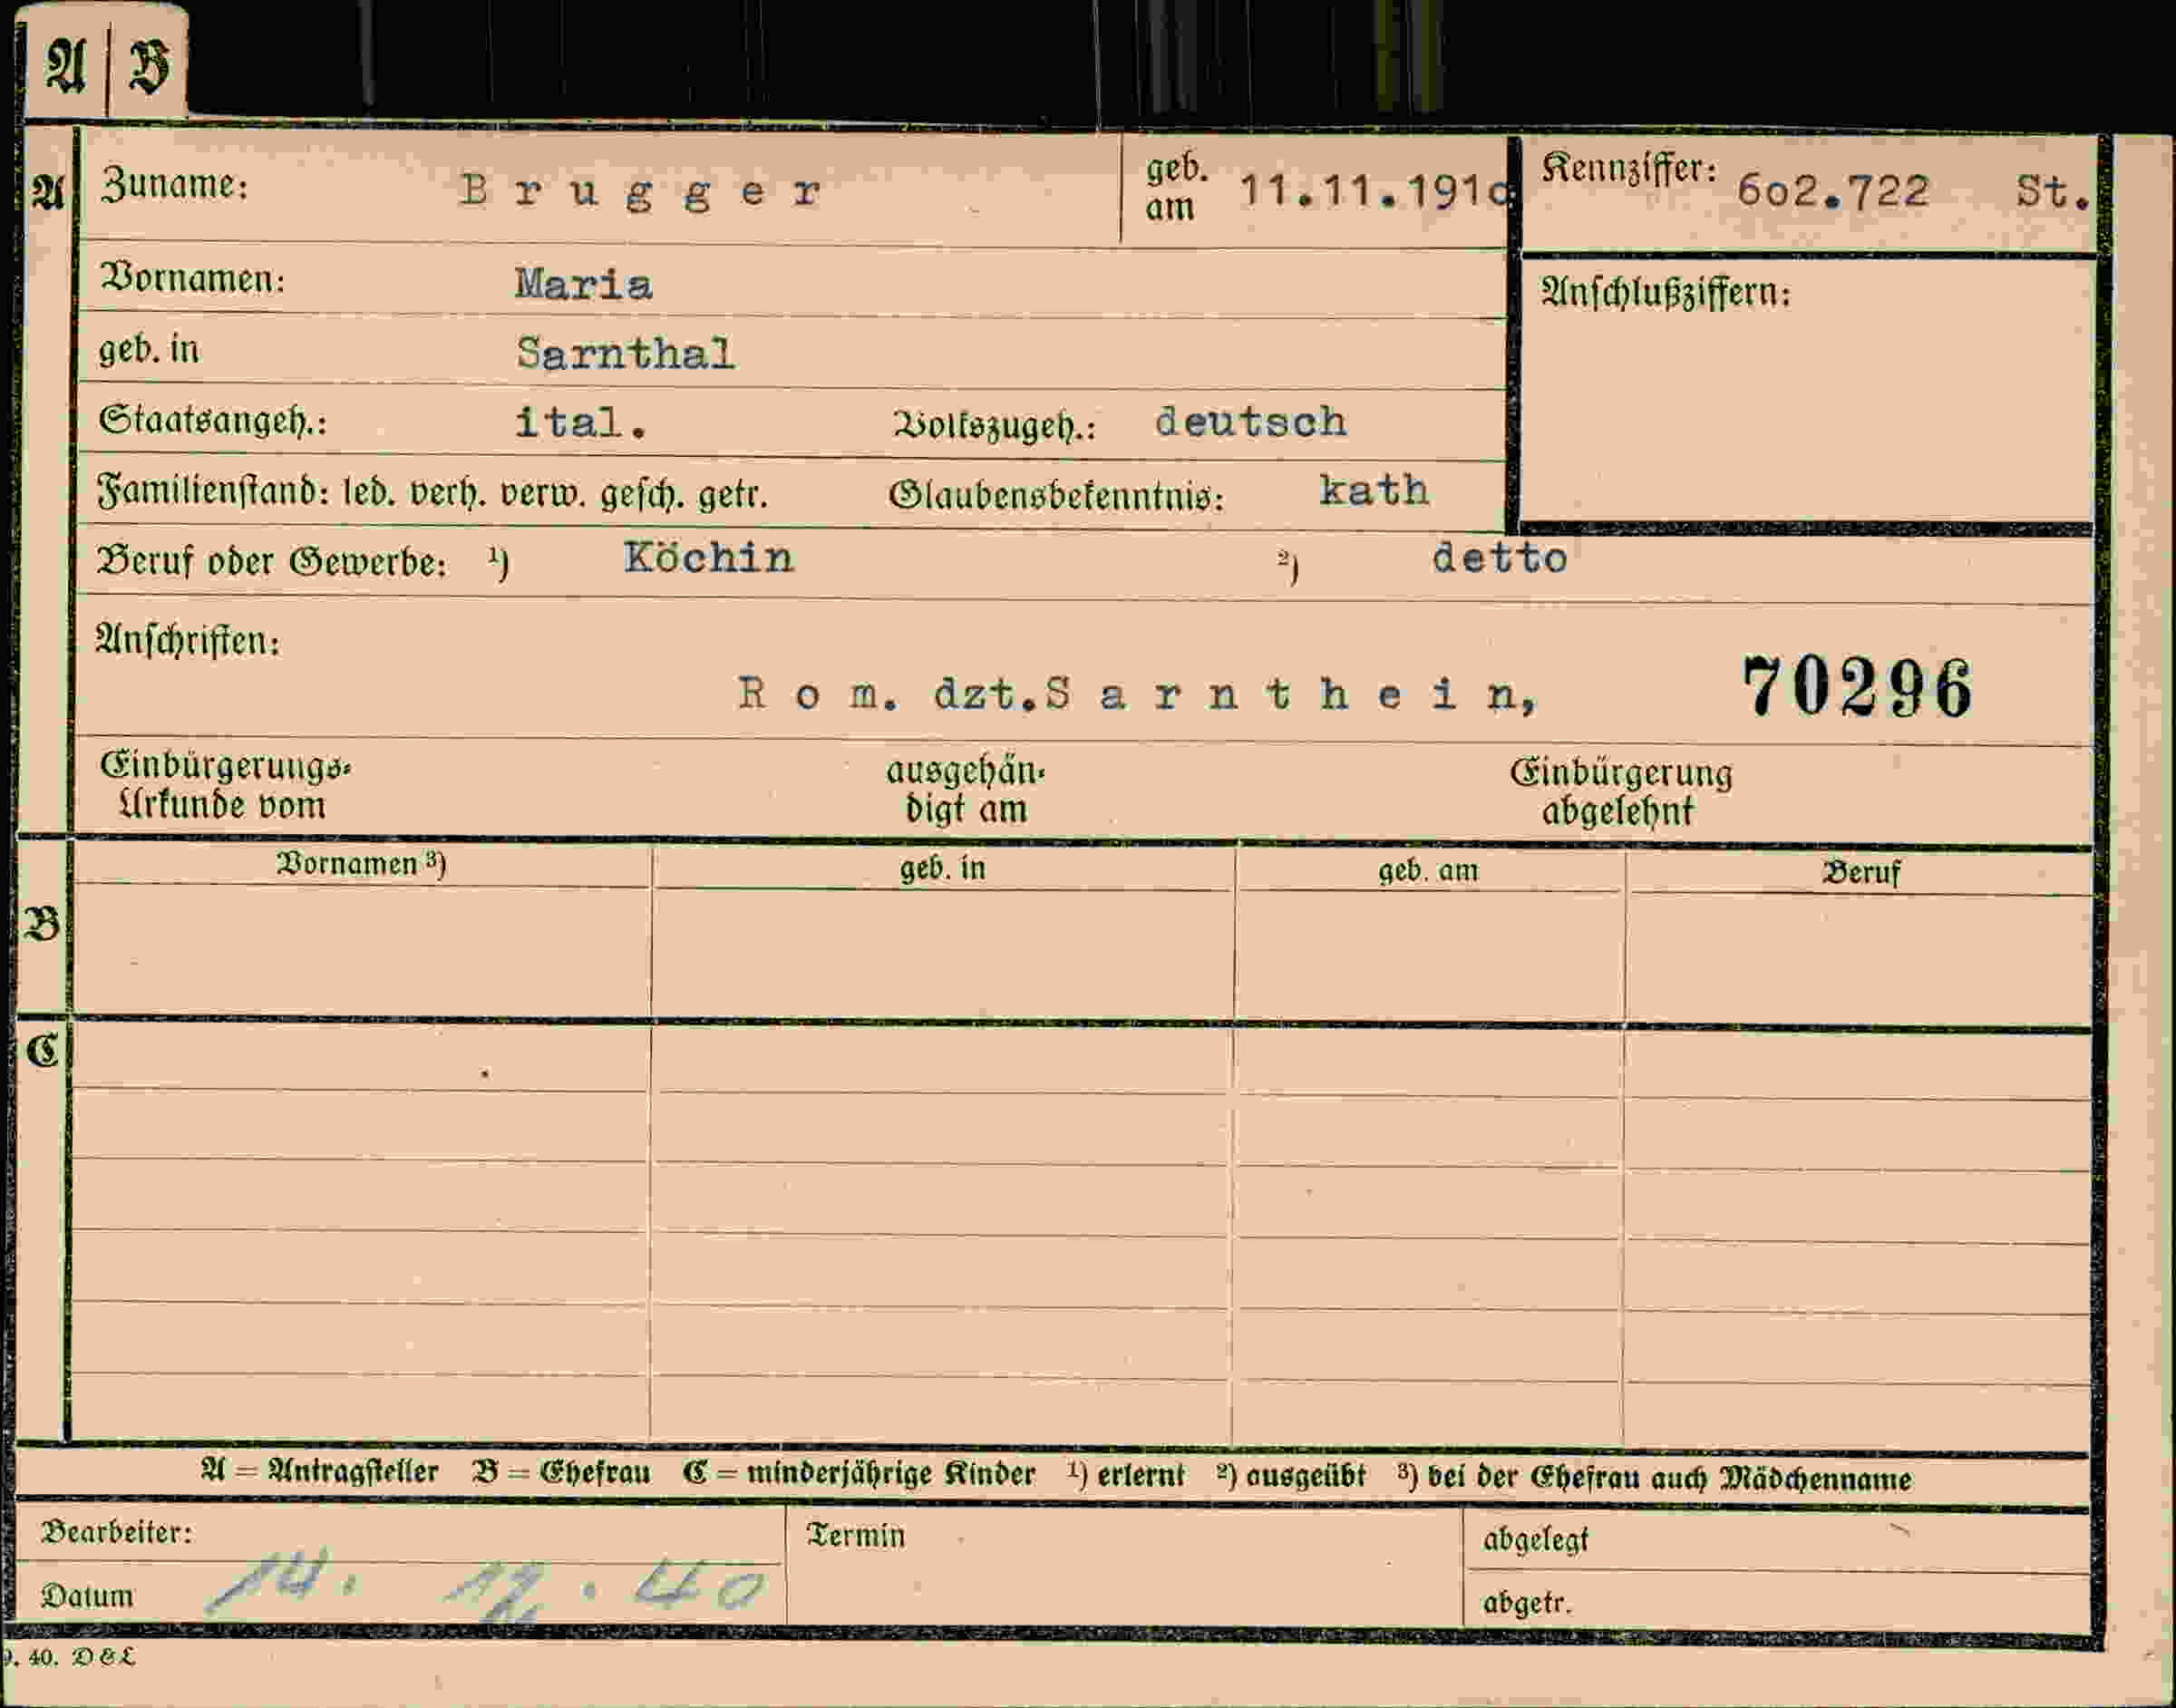 A B
A Zuname: Brugger geb. am 11.11.191o Kennziffer: 6o2.722 St.
Vornamen: Maria Anschlußziffern:
geb. in Sarnthal
Staatsangeh.: ital. Volkszugeh.: deutsch
Familienstand: led. verh. verw. gesch. getr. Glaubensbekenntnis: kath
Beruf oder Gewerbe: ¹) Köchin ²) detto
Anschriften:
Rom. dzt.Sarnthein, 70296
Einbürgerungs- ausgehän- Einbürgerung
Urkunde vom digt am abgelehnt
Vornamen ³) geb. in geb. am Beruf
B
C
A = Antragsteller B = Ehefrau C = minderjährige Kinder ¹) erlernt ²) ausgeübt ³) bei der Ehefrau auch Mädchenname
Bearbeiter: Termin abgelegt
Datum 14. 40 abgetr.
40. D & L